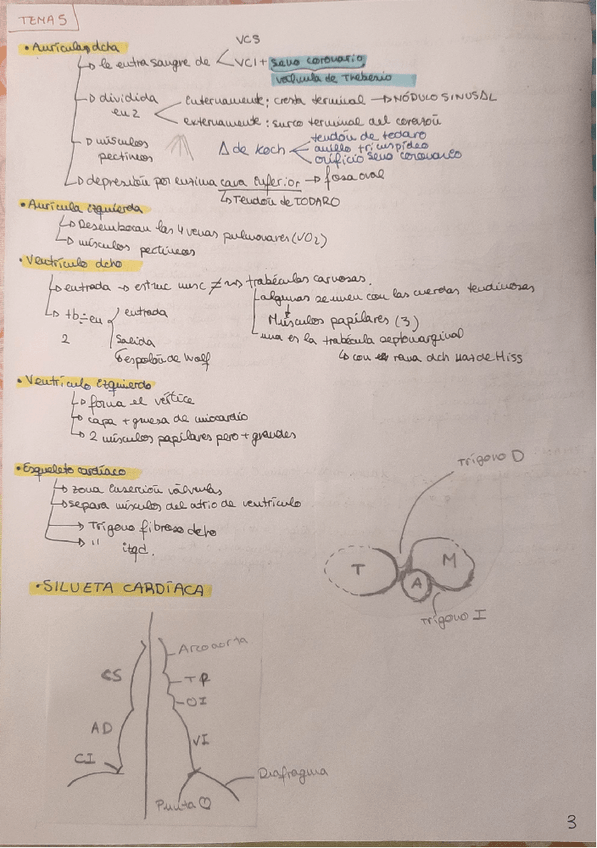 TEMA 5
• Aurícula dcha
↳ le entra sangre de < VCS
VCI + seno coronario
válvula de Thebesio
↳ dividida en 2 < internamente: cresta terminal → NÓDULO SINUSAL
externamente: surco terminal del corazón
↳ músculos pectíneos
Δ de Koch < tendón de todaro
anillo tricuspídeo
orificio seno coronario
↳ depresión por encima cava inferior → fosa oval
↳ Tendón de TODARO
• Aurícula izquierda
↳ Desembocan las 4 venas pulmonares (VO2)
↳ músculos pectíneos
• Ventrículo dcho
↳ entrada → estruc musc ≠ → trabéculas carnosas.
algunas se unen con las cuerdas tendinosas
Músculos papilares (3)
una es la trabécula septomarginal
↳ con rama dch Haz de Hiss
↳ tb ÷ en 2
entrada
Salida
↳ espolón de Wolf
• Ventrículo Izquierdo
↳ forma el vértice
↳ capa + gruesa de miocardio
↳ 2 músculos papilares pero + grandes
• Esqueleto cardíaco
↳ zona inserción válvulas
↳ separa músculos del atrio de ventrículo
↳ Trígono fibroso dcho
↳ " izqd.
Trígono D
T
M
A
Trígono I
• SILUETA CARDÍACA
CS
AD
CI
Arco aorta
TP
OI
VI
Diafragma
Punta
3